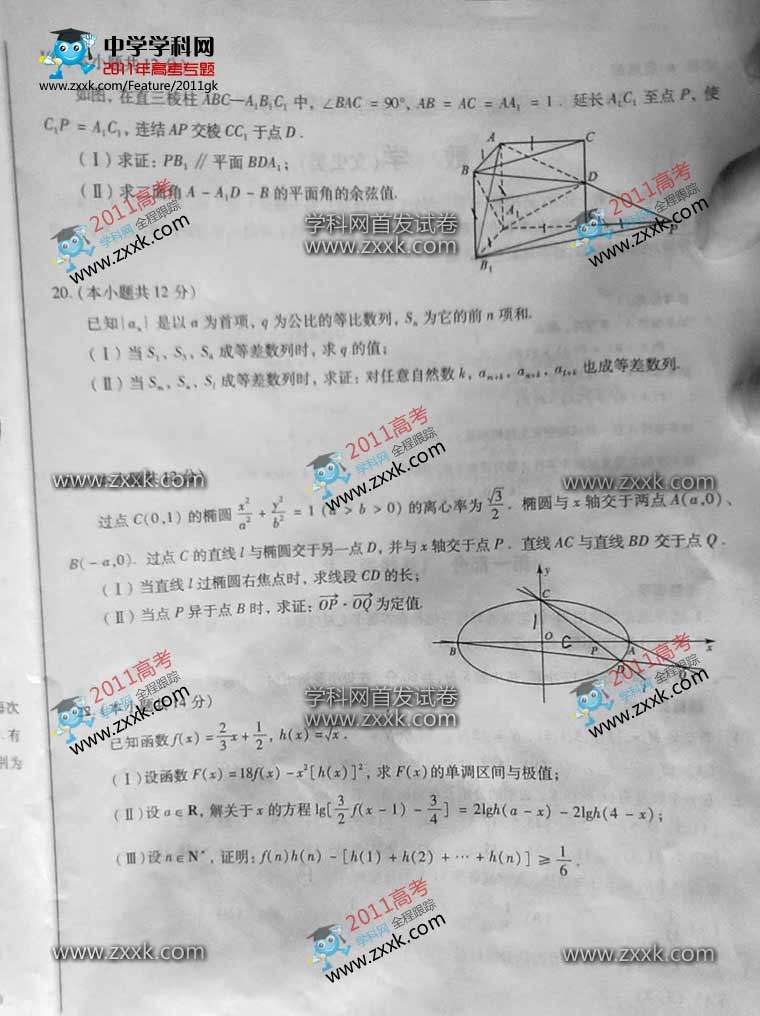 中学学科网
2011年高考专题
www.zxxk.com/Feature/2011gk
小题共
如图,在直三棱柱 ABC—A₁B₁C₁ 中,∠BAC = 90°, AB = AC = AA₁ = 1 . 延长 A₁C₁ 至点 P, 使
C₁P = A₁C₁, 连结 AP 交棱 CC₁ 于点 D .
(Ⅰ) 求证: PB₁ ∥ 平面 BDA₁;
(Ⅱ) 求二面角 A - A₁D - B 的平面角的余弦值.
A
C
B
D
A₁
P
B₁
2011高考
学科网 全程跟踪
zxxk.com
学科网首发试卷
www.zxxk.com
2011高考
学科网 全程跟踪
zxxk.com
20. (本小题共 12 分)
已知{aₙ} 是以 a 为首项, q 为公比的等比数列, Sₙ 为它的前 n 项和.
(Ⅰ) 当 S₁、S₃、S₄ 成等差数列时, 求 q 的值;
(Ⅱ) 当 Sₘ、Sₙ、Sₗ 成等差数列时, 求证: 对任意自然数 k, aₘ₊ₖ、aₙ₊ₖ、aₗ₊ₖ 也成等差数列.
2011高考
学科网 全程跟踪
zxxk.com
www.zxxk.com
www.zxxk.com
共 12 分)
过点 C(0,1) 的椭圆 x²/a² + y²/b² = 1 (a > b > 0) 的离心率为 √3/2 . 椭圆与 x 轴交于两点 A(a,0)、
B(-a,0). 过点 C 的直线 l 与椭圆交于另一点 D, 并与 x 轴交于点 P . 直线 AC 与直线 BD 交于点 Q .
(Ⅰ) 当直线 l 过椭圆右焦点时, 求线段 CD 的长;
(Ⅱ) 当点 P 异于点 B 时, 求证: OP→ · OQ→ 为定值.
y
C
1
B
O
C
P
A
x
D
Q
2011高考
学科网 全程跟踪
www.zxxk.com
学科网首发试卷
www.zxxk.com
2011高考
学科网 全程跟踪
zxxk.com
每次
有
别为
(本小题共14 分)
已知函数 f(x) = 2/3 x + 1/2, h(x) = √x .
(Ⅰ) 设函数 F(x) = 18f(x) - x²[h(x)]², 求 F(x) 的单调区间与极值;
(Ⅱ) 设 a ∈ R, 解关于 x 的方程 lg[3/2 f(x - 1) - 3/4] = 2lgh(a - x) - 2lgh(4 - x);
(Ⅲ) 设 n ∈ N*, 证明: f(n)h(n) - [h(1) + h(2) + ⋯ + h(n)] ≥ 1/6 .
2011高考
学科网 全程跟踪
www.zxxk.com
www.zxxk.com
www.zxxk.com